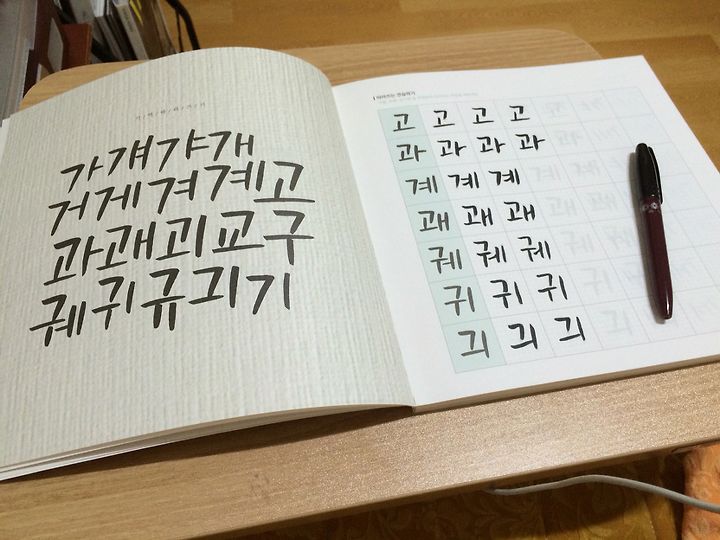 가 걔 갸 개
거 게 겨 계 고
과 괘 괴 교 구
궤 귀 규 긔 기
따라쓰는 연습하기
고 고 고 고
과 과 과 과
계 계 계
괘 괘 괘
궤 궤 궤
귀 귀 귀
긔 긔 긔